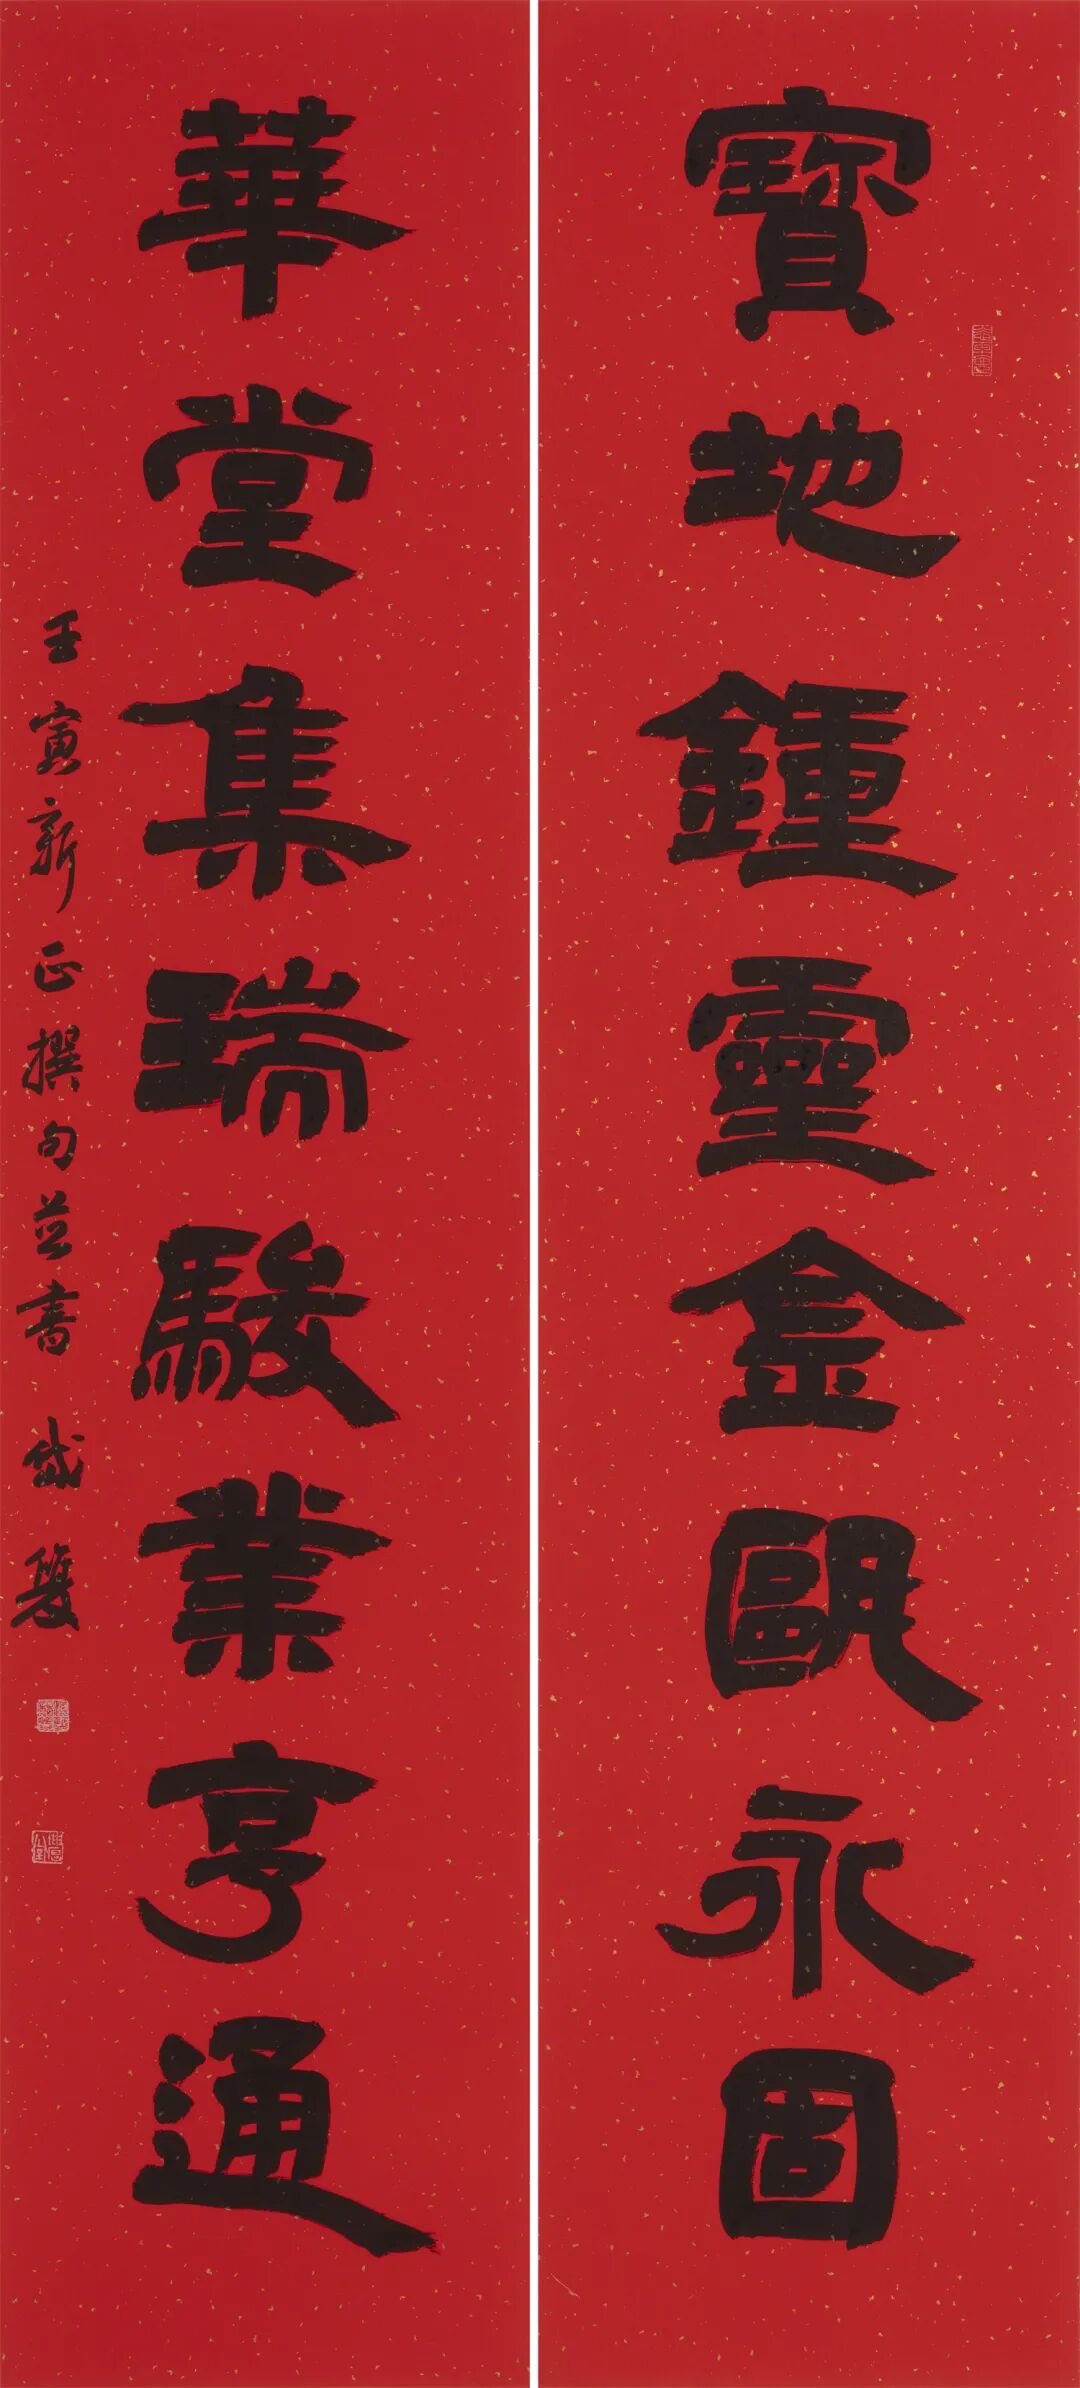 寶地鍾靈金甌永固
華堂集瑞駿業亨通
壬寅新正撰句並書